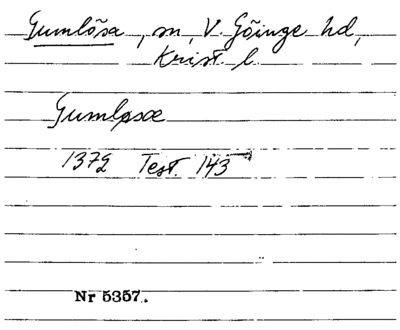 Gumlõsa, sn, V. Gõinge hd,
Krist. l.
Gumløsæ
1372 Test. 143
Nr 5357.